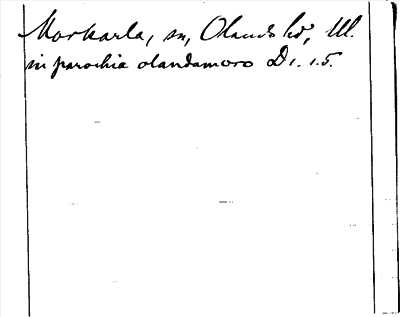 Morkarla, sn, Olands hd, Ul.
in parochia olandamoro D 1. 1.5.